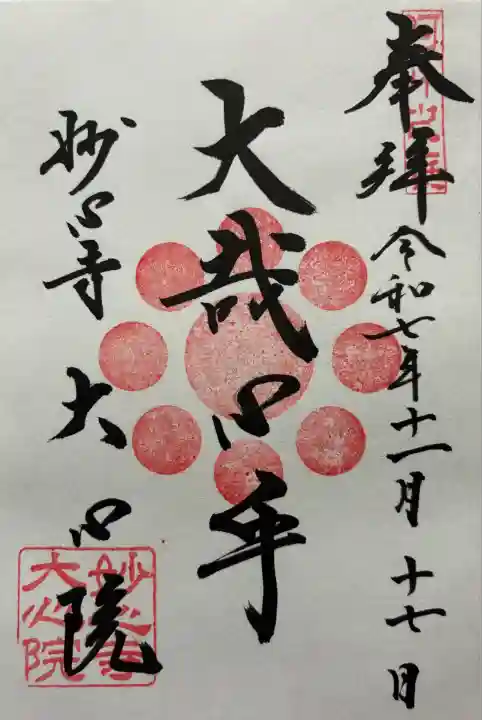 奉拜
令和七年十一月十七日
大哉心乎
妙心寺 大心院
妙心寺
大心院